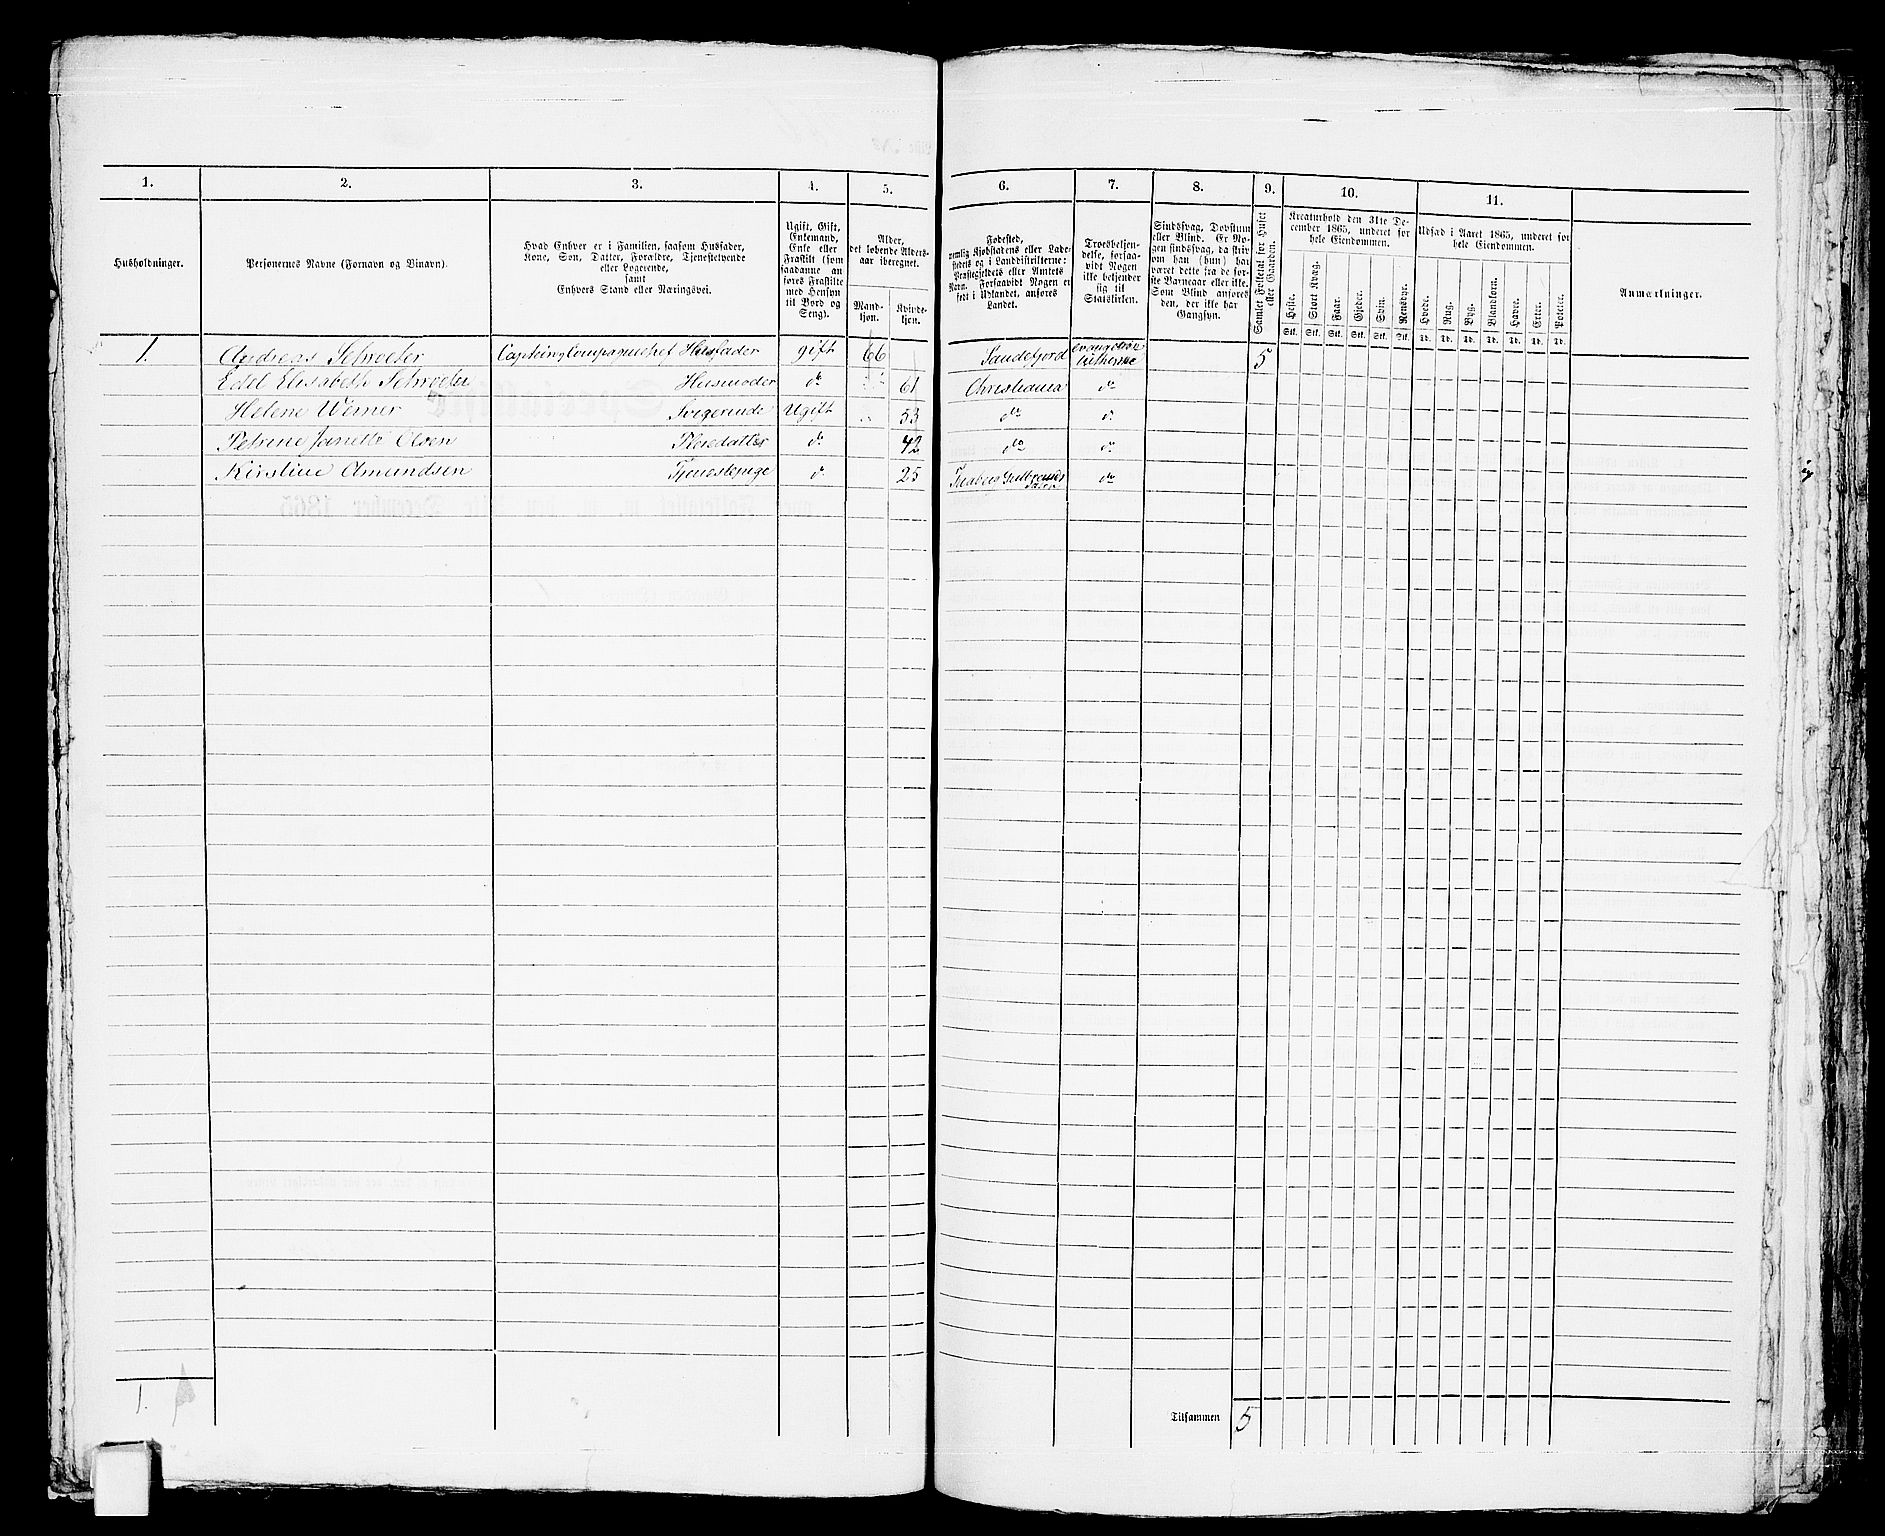 1. 2. 3. 4. 5. 6. 7. 8. 9. 10. 11.
Husholdninger.
Personernes Navne (Fornavn og Tilnavn).
Hvad Enhver er i Familien, saasom Husfader,
Kone, Søn, Datter, Forældre, Tjenestetyende
eller Logerende,
samt
Enhvers Stand eller Næringsvei.
Ugift, Gift,
Enkemand,
Enke eller
Fraskilt (som
saadanne an-
føres Fraskilte
med Hensyn
til Bord og
Seng).
Alder,
det løbende Alders-
aar iberegnet.
Mand-
kjøn.
Kvinde-
kjøn.
Fødested,
nemlig Kjøbstadens eller Lade-
stedets og i Landdistrikterne:
Præstegjeldets eller Amtets
Navn. Forsaavidt Nogen er
født i Udlandet, anføres
Landet.
Troesbekjen-
delse, forsaa-
vidt Nogen
ikke bekjender
sig til
Statskirken.
Sindssvag, Døvstum
eller Blind. Er No-
gen sindssvag, da skri-
ves om han (hun) har
været dette fra de før-
ste Barneaar eller ikke.
Som Blind anføres
den, der ikke har
Gangsyn.
Samlet Folketal for Huset
eller Gaarden.
Kreaturhold den 31te De-
cember 1865, underet for
hele Eiendommen.
Heste. Stort Kvæg. Faar. Gjeder. Svin. Rensdyr.
Stk. Stk. Stk. Stk. Stk. Stk.
Udsæd i Aaret 1865, underet for
hele Eiendommen.
Hvede. Rug. Byg. Blandkorn. Havre. Erter. Poteter.
Td. Td. Td. Td. Td. Td. Td.
Anmærkninger.
1. Andreas Schroeter Husfader gift 66 Sandefjord evangelisk lutherske 5
Edel Elisabeth Schroeter Husmoder do 61 Christiania do
Helene Werner Ugift 53 do d.
Petrine Olsen Pleiedatter do 42 do d.
Kirstine Amundsen Tjenestepige d. 25 do
1.
Tilsammen 5